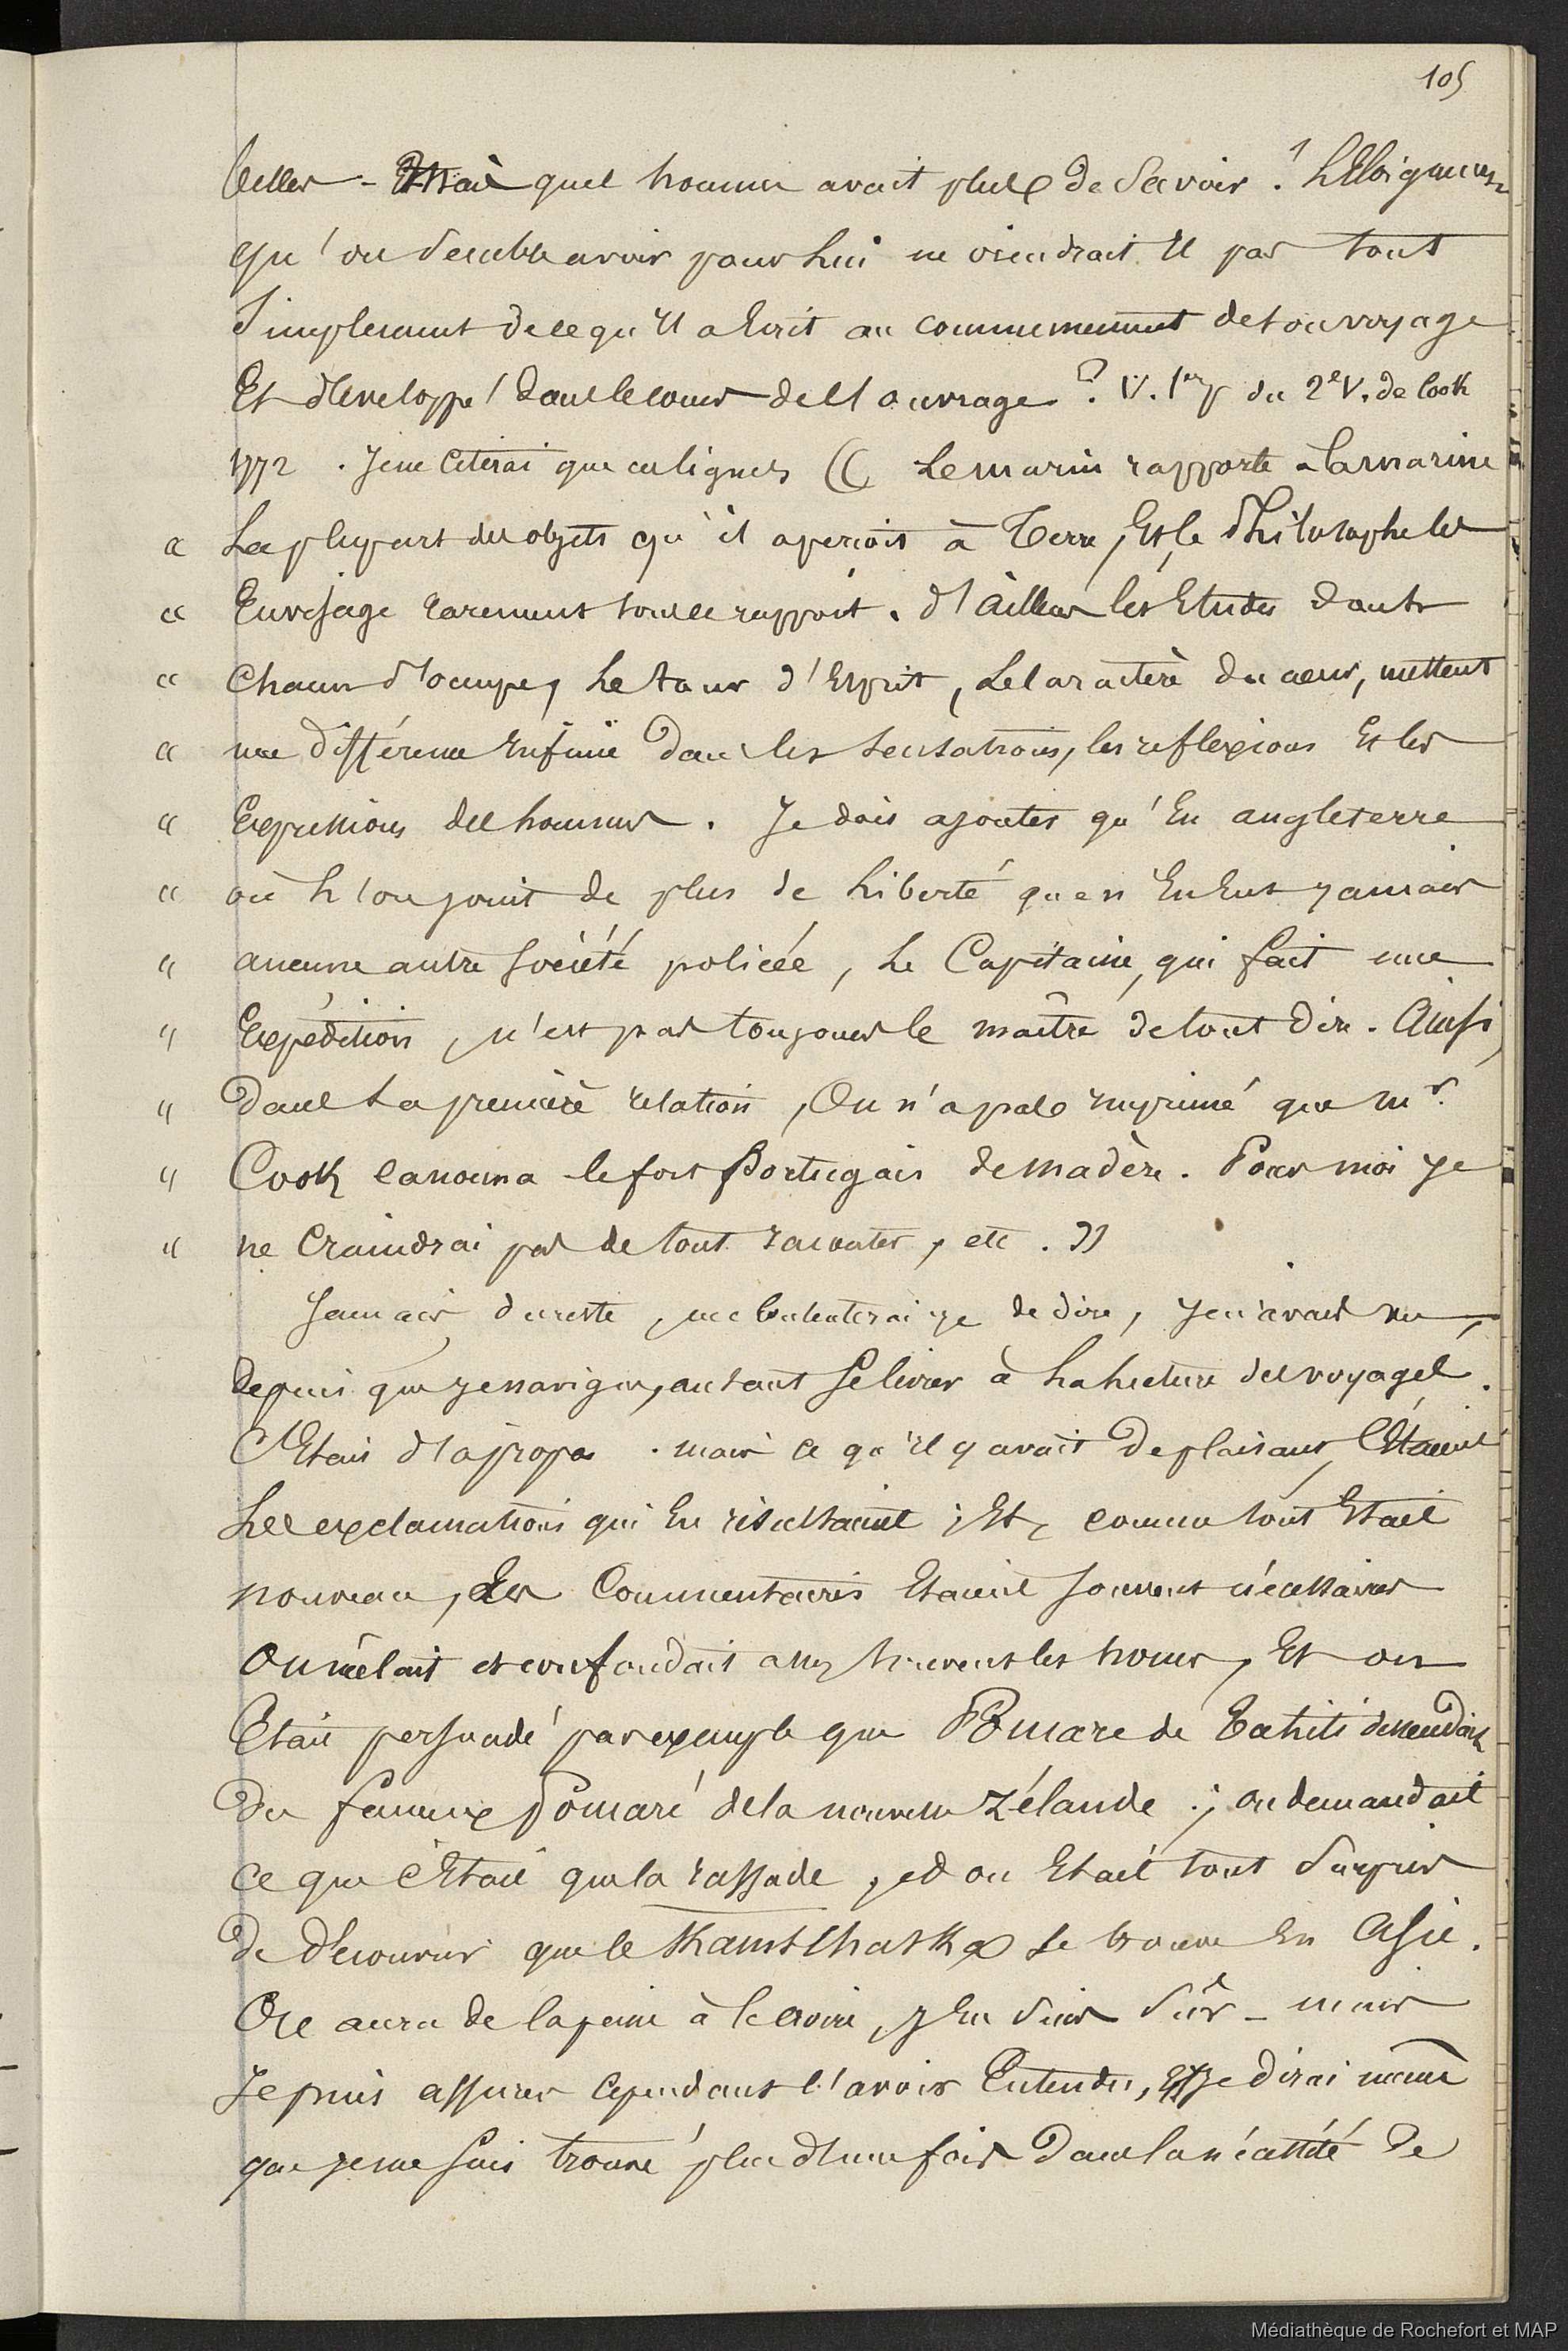 105
telles - Mais quel homme avait plus de Savoir ! L'Eloignement
qu'on semble avoir pour Lui ne viendrait Il pas tout
Simplement de ce qu'Il a Ecrit au commencement de son voyage
Et d'Eveloppé dans le cours de l'ouvrage ? V. 1er du 2e V. de Cook
1772 . Je ne Citerai que ces lignes (( Le marin rapporte à La marine
" La plupart des objets qu'il aperçoit à Terre, Et le Philosophe les
" Envisage rarement sous ce rapport. d'Ailleurs les Etudes dont
" Chacun s'occupe, Le tour d'Esprit, Le Caractère du coeur, mettent
" une différence Infinie dans les sensations, les reflexions Et les
" Expressions des hommes . Je dois ajouter qu'En angleterre
" où L'on jouit de plus de Liberté que n'En Eut jamais
" aucune autre Société policée, Le Capitaine, qui fait une
" Expédition, n'est pas toujours le maître de tout dire. Ainsi,
" Dans La première relation, On n'a pas Imprimé que Mr.
" Cook canonna le fort Portugais de Madère. Pour moi je
" ne Craindrai pas de tout raconter, etc . ))
Jamais, du reste, me Contenterai je de dire, je n'avais vu,
depuis que je navigue, autant Se livrer à La Lecture des voyages.
C'Etait d'apropos . mais ce qu'il y avait De plaisant, C'Etaient
Les exclamations qui En résultaient ; Et, comme tout Etait
nouveau, des Commentaires Etaient Souvent nécessaires
On mêlait et confondait assez souvent les noms, Et on
Etait persuadé par exemple que Pomare de Tahiti descendait
Du fameux Pomaré de la nouvelle Zélande ; on demandait
ce que c'Etait que la rassade, et on Etait tout Surpris
De d'Ecouvrir que le Kamstchatka se trouve En Asie.
On aura de la peine à le croire, j'En Suis Sûr - mais
Je puis assurer cependant l'avoir Entendu, Et je dirai même
que je me Suis trouvé plus d'une fois Dans la nécessité De
Médiathèque de Rochefort et MAP